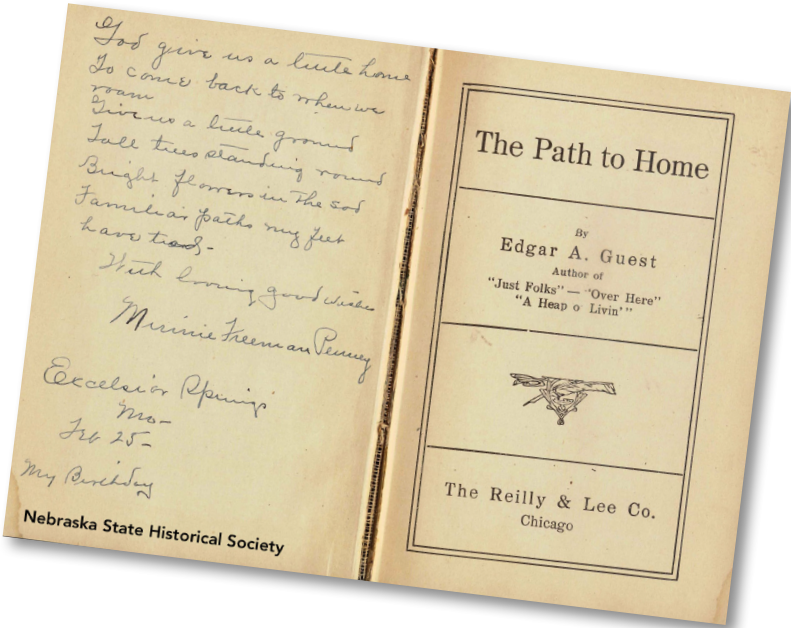 God give us a little home
To come back to when we
roam
Give us a little ground
Tall trees standing round
Bright flowers in the sod
Familiar paths my feet
have trod-
With loving good wishes
Minnie Freeman Penney
Excelsior Springs
Mo-
Feb 25-
My Birthday
Nebraska State Historical Society
The Path to Home
By
Edgar A. Guest
Author of
"Just Folks" — "Over Here"
"A Heap o' Livin'"
The Reilly & Lee Co.
Chicago